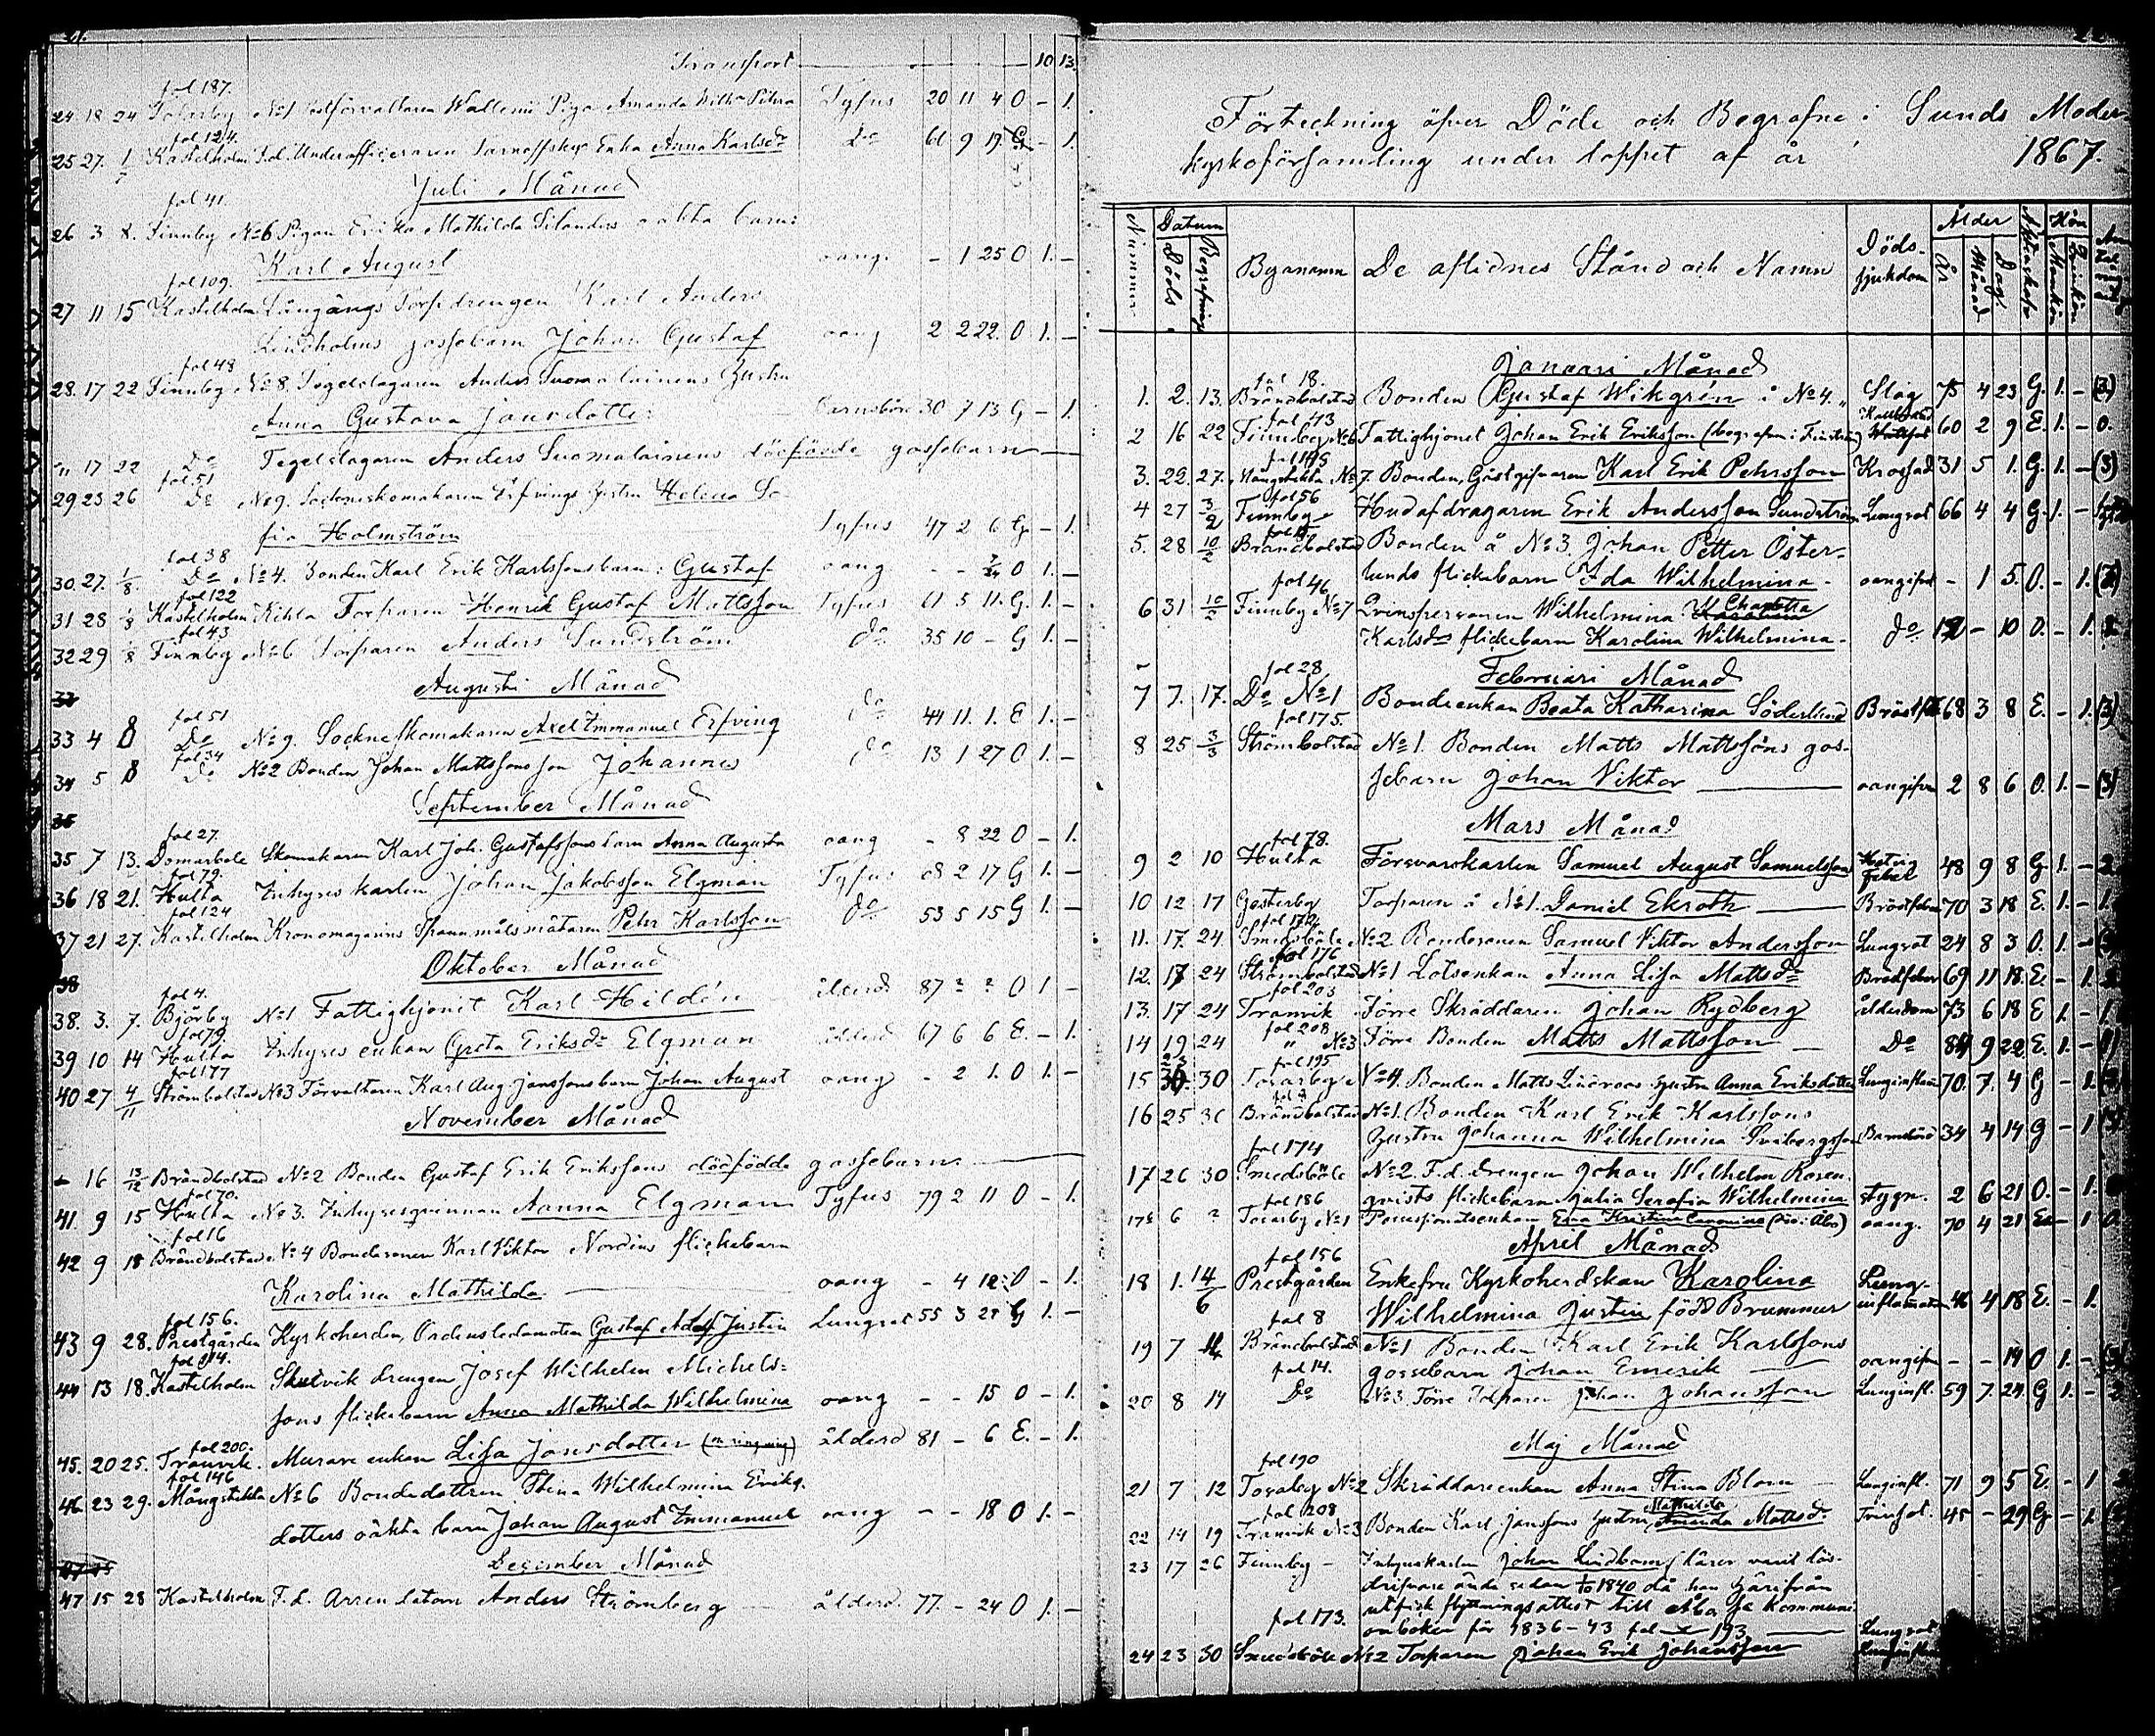 Transport — 10 13.
fol 187.
24 18 24 Tosarby No 1 Postförvaltaren Wallenii Piga Amanda Tyfus 20 11 4 O – 1.
fol 124.
25 27. 1/7 Kastelholm F.d. Underofficeraren Enka Anna Karlsdr Do 61 9 19. G – 1.
Juli Månad
fol 41.
26 3 8. Finnby No 6 Pigan Erika Mathilda Silanders oäkta barn:
Karl August oang. – 1 25 O 1. –
fol 109.
27 11 15 Kastelholm Slängångs Torpdrengen Karl Anders
Lindholms gossebarn Johan Gustaf oang 2 2 22. O 1. –
fol 48
28. 17 22 Finnby No 8. Tegelslagaren Anders Suomalainens Hustru
Anna Gustava Jansdotter Barnsbörd 30 7 13 G – 1.
" 17 22 Do Tegelslagaren Anders Suomalainens dödfödde gossebarn —
fol 51
29 23 26 Do No 9. Sockneskomakaren Erfvings Hustru Helena So-
fia Holmström Tyfus 47 2 6 G – 1.
fol 38
30. 27. 1/8. Do No 4. Bonden Karl Erik Karlssons barn: Gustaf oang – – 7/24 O 1. –
fol 122
31 28 1/8 Kastelholm Torparen Henrik Gustaf Mattsson Tyfus 61 5 11. G. 1. –
fol 43
32 29 1/8 Finnby No 6 Torparen Anders Sundström do 35 10 – G 1. –
Augusti Månad
fol 51
33 4 8 Do No 9. Sockneskomakaren Axel Emmanuel Erfving Do 44 11. 1. E 1. –
fol 34
34 5 8 Do No 2 Bonden Johan Mattssons son Johannes do 13 1 27 O 1. –
September Månad
fol 27.
35 7 13. Domarböle Skomakaren Karl Joh. Gustafssons barn Anna Augusta oang – 8 22 O – 1.
fol 79.
36 18 21. Hulta Inhyses karlen Johan Jakobsson Elgman Tyfus 68 2 17 G 1. –
fol 124
37 21 27. Kastelholm Kronomagasins Spannmålsmätaren Pehr Karlsson do 53 5 15 G 1. –
Oktober Månad
fol 4.
38. 3. 7. Björby No 1 Fattighjonet Karl Hildén ålderd 87 ? ? O 1 –
fol 79.
39 10 14 Hulta Inhyses enkan Greta Eriksdr Elgman ålderd 67 6 6 E. – 1.
fol 177
40 27 4/11 Strömbolstad No 3 Förvaltaren Karl Aug Janssons barn Johan August oang – 2 1. O 1. –
November Månad
– 16 13/12 Brändbolstad No 2 Bonden Gustaf Erik Erikssons dödfödde gossebarn. —
fol 70.
41. 9 15 Hulta No 3. Inhysesqvinnan Aanna Elgman Tyfus 79 2 11 O – 1.
fol 16
42 9 18 Brändbolstad No 4 Bondesonen Karl Viktor Nordins flickebarn
Karolina Mathilda oang – 4 12 O – 1.
fol 156.
43 9 28. Prestgården Kyrkoherden, Ordensledamoten Gustaf Adolf Justin Lungsot 55 3 28 G 1. –
fol 114.
44 13 18. Kastelholm Slutvik drengen Josef Wilhelm Michels-
sons flickebarn Anna Mathilda Wilhelmina oang – – 15 O – 1.
fol 200.
45. 20 25. Tranvik. Murare enkan Lisa Jansdotter ålderd 81 – 6 E. – 1.
fol 146
46 23 29. Mångstekta No 6 Bondedottren Stina Wilhelmina Eriks-
dotters oäkta barn Johan August Emmanuel oang – – 18 O 1. –
December Månad
47 15 28 Kastelholm F.d. Arrendatorn Anders Strömberg ålderd. 77. – 24 O 1. –
Förteckning öfver Döde och Begrafne i Sunds Moder-
kyrkoförsamling under loppet af år 1867.
Nummer Datum Döds Begrafnings Byanamn De aflidnes Stånd och Namn Döds-sjukdom Ålder År Månad Dag Kön Mankön Qvinkön
Januari Månad
fol 18.
1. 2. 13. Brändbolstad Bonden Gustaf Wikgrén å No 4. Slag 75 4 23 G. 1. – (3)
fol 43
2 16 22 Finnby No 6 Fattighjonet Johan Erik Eriksson (begrafven i Finström) Kallbrand 60 2 9 E. 1. – 0.
fol 145
3. 22. 27. Mångstekta No 7. Bonden, Gästgifvaren Karl Erik Pehrsson Krossad 31 5 1. G. 1. – (3)
fol 56
4 27 3/2 Finnby Hudafdragaren Erik Andersson Sundström Lungsot 66 4 4 G. 1. –
5. 28 10/2 Brändbolstad Bonden å No 3. Johan Petter Öster-
lunds flickebarn Ida Wilhelmina – oangifvet – 1 5. O. – 1. (2)
fol 46
6 31 10/2 Finnby No 7 Qvinspersonen Wilhelmina Charlotta
Karlsdrs flickebarn Karolina Wilhelmina – do – 10 O. – 1. 2
Februari Månad
fol 28
7 7. 17. Do No 1 Bondeenkan Beata Katharina Söderlund Bröstf. 68 3 8 E. – 1. (3)
fol 175.
8 25 3/3 Strömbolstad No 1. Bonden Matts Mattssons gos-
sebarn Johan Viktor oangifven 2 8 6 O. 1. – (3)
Mars Månad
fol 78.
9 2 10 Hulta Försvarskarlen Samuel August Samuelsson Hetsig Feber 48 9 8 G. 1. – 2
10 12 17 Gesterby Torparen å No 1. Daniel Ekroth Bröstfeber 70 3 18 E. 1. – 1.
fol 172.
11. 17. 24 Smedsböle No 2 Bondesonen Samuel Viktor Andersson Lungsot 24 8 3 O. 1. –
fol 176
12. 17 24 Strömbolstad No 1 Lotsenkan Anna Lisa Mattsdr Bröstfeber 69 11 18. E. – 1.
fol 203
13. 17 24 Tranvik Förre Skräddaren Johan Rydberg ålderdom 73 6 18 E 1. –
fol 208
14 19 24 " No 3 Förre Bonden Matts Mattsson Do 84 9 22 E. 1. – (1)
fol 195
15 23 30 Tosarby No 4. Bonden Matts Lindroos Hustru Anna Eriksdotter Lunginflam 70. 7. 4 G – 1.
fol 8
16 25 30 Brändbolstad No 1. Bonden Karl Erik Karlssons
Hustru Johanna Wilhelmina Barnbörd 34 4 14 G – 1
fol 174
17 26 30 Smedsböle No 2. F.d. drengen Johan Wilhelm Rosen-
qvists flickebarn Julia Serafia Wilhelmina stygn. 2 6 21 O. – 1.
fol 186
17½ 6 ? Tosarby No 1 Possessionatsenkan Eva Kristina (dog i Åbo) oang. 70 4 21 E – 1 0
April Månad
fol 156
18 1. 14/6 Prestgården Enkefru Kyrkoherdskan Karolina Lung-
Wilhelmina Justin född Brummer inflamation 46 4 18 E. – 1.
fol 8
19 7 14 Brändbolstad No 1 Bonden Karl Erik Karlssons
gossebarn Johan Emerik oangifven – – 14 O 1. –
fol 14.
20 8 14 Do No 3. Förre Torparen Johan Johansson Lunginfl. 59 7. 24. G 1. – 2
Maj Månad
fol 190
21 7 12 Tosarby No 2 Skräddareenkan Anna Stina Blom Lunginfl. 71 9 5 E. – 1 2
fol 208
22 14 19 Tranvik No 3 Bonden Karl Janssons Hustru Mathilda Amanda Mattsdr Trinsot. 45 – 29 G – 1.
23 17 26 Finnby – Inhyseskarlen Johan Lindbom (lärer varit lös-
drifvare ända sedan 1840 då han härifrån
utfick flyttningsattest till Åbo, se kommuni-
onboken för 1836–43 fol 193. Lungsot
fol 173.
24 23 30 Smedsböle No 2 Torparen Johan Erik Johansson Lunginfl